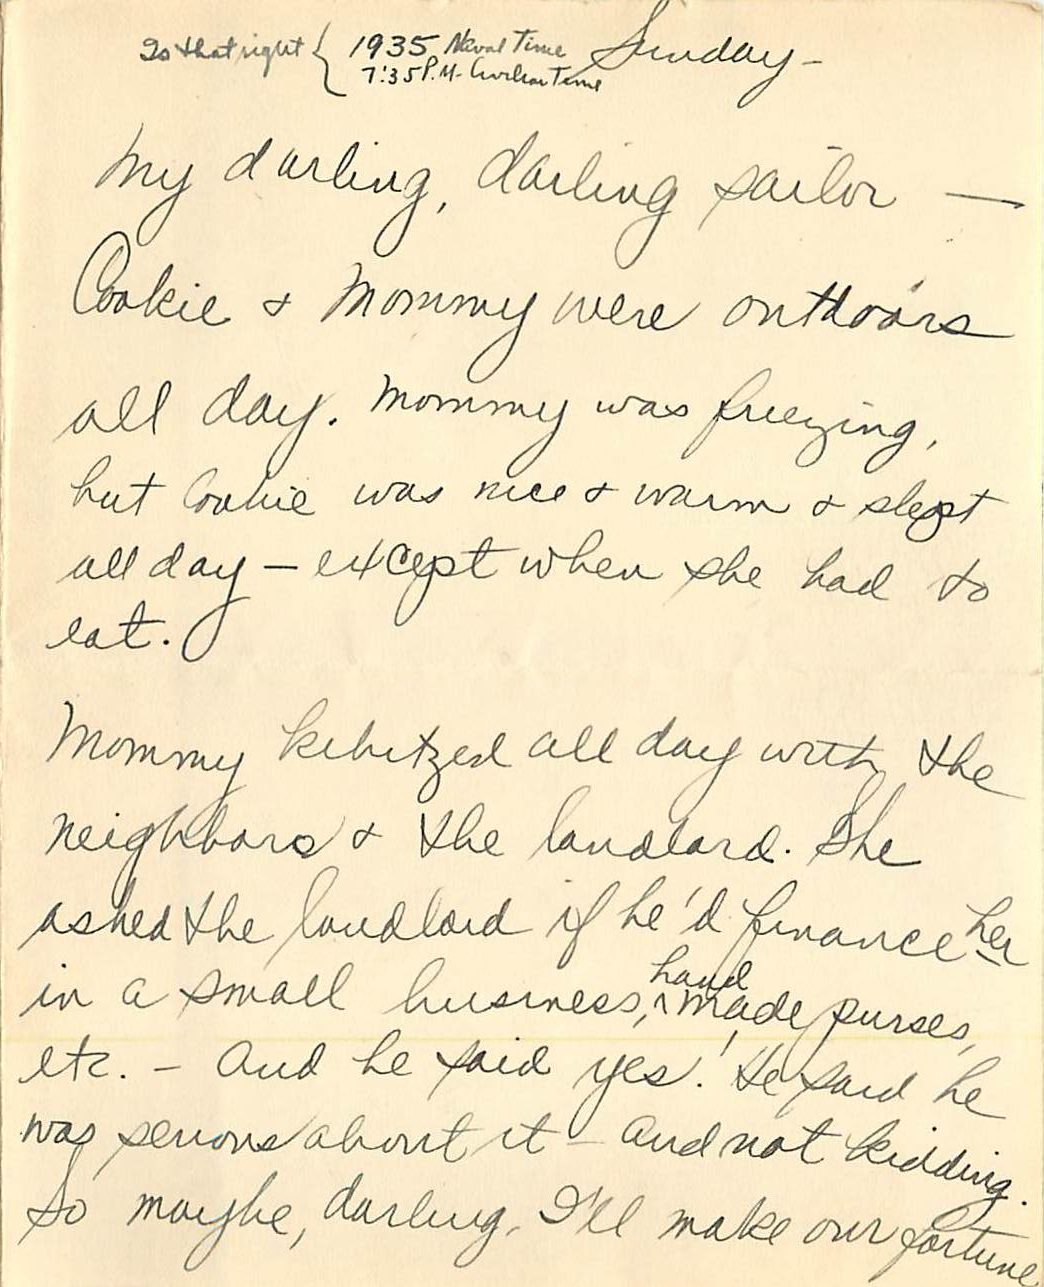 Is that right { 1935 Naval Time Sunday -
7:35 P.M. - Civilian Time
My darling, darling sailor —
Cookie & Mommy were outdoors
all day. Mommy was freezing,
but Cookie was nice & warm & slept
all day — except when she had to
eat.
Mommy kibitzed all day with the
neighbors & the landlord. She
asked the landlord if he'd finance her
in a small business, hand made purses,
etc. - And he said yes! He said he
was serious about it - and not kidding.
So maybe, darling, I'll make our fortune